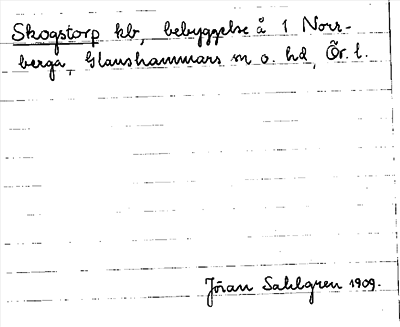 Skogstorp kb, bebyggelse å 1 Norr-
berga, Glanshammars sn o. hd, Ör. l.
Jöran Sahlgren 1909.